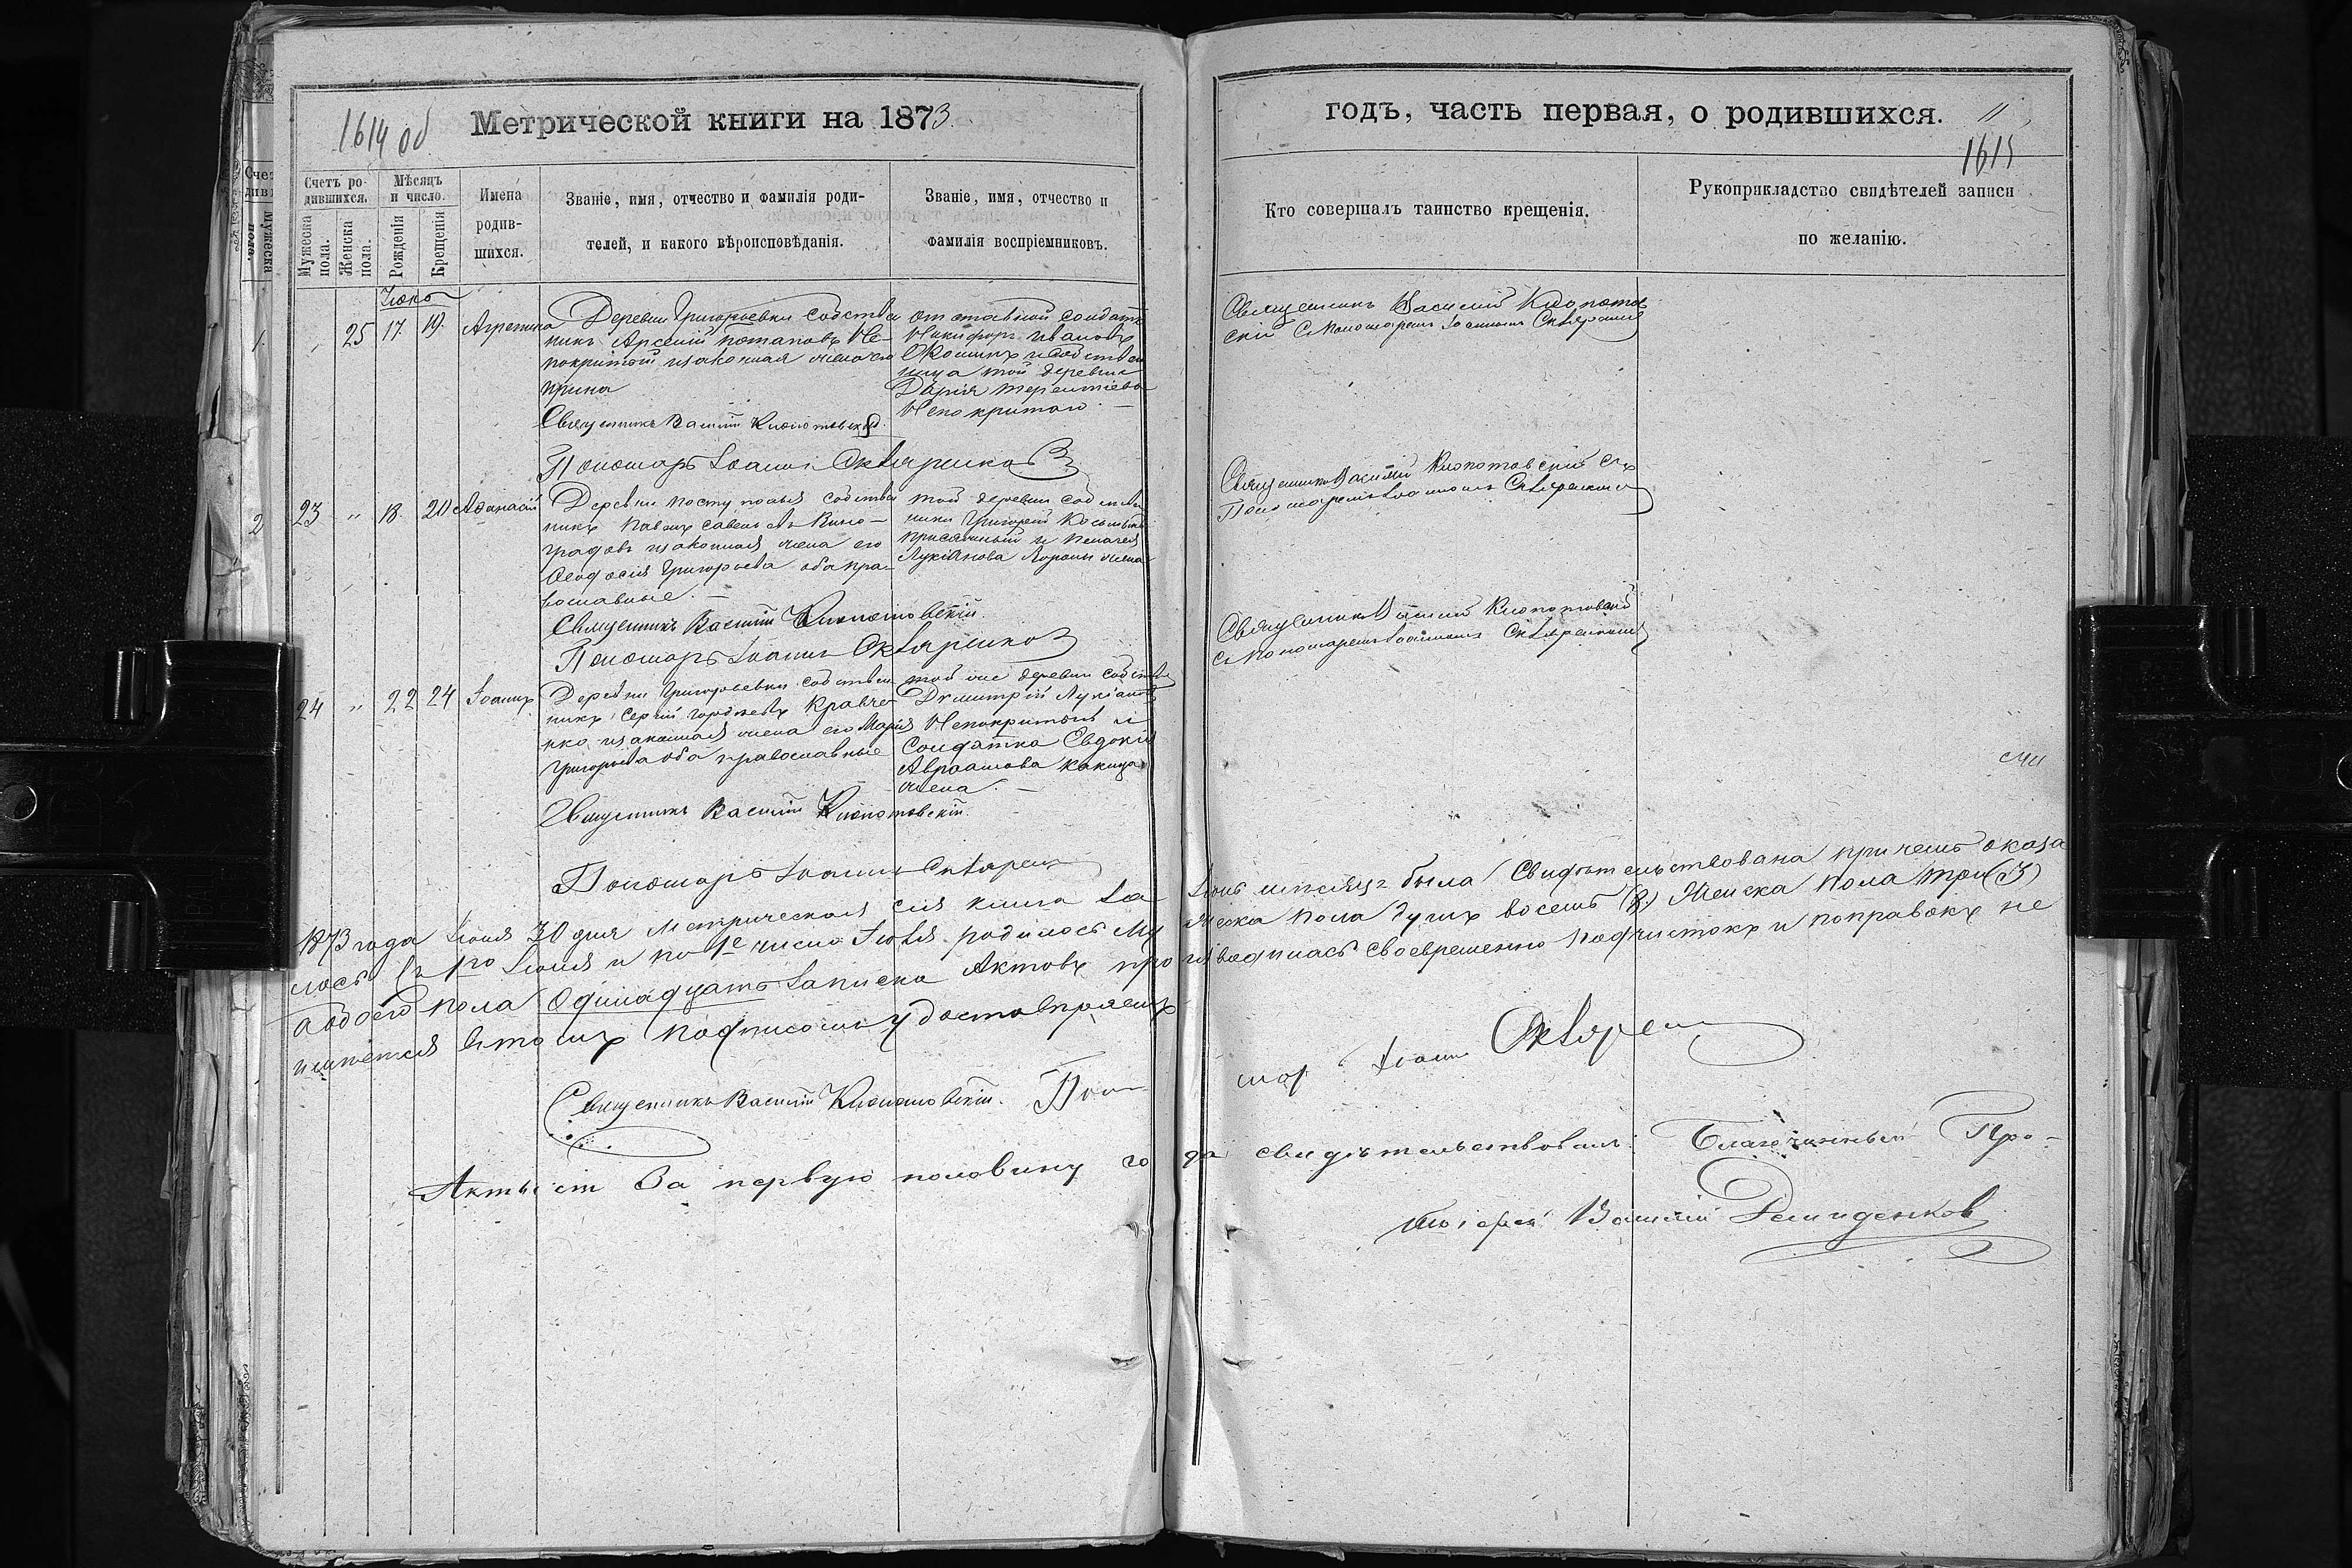 1614 об
Метрической книги на 1873.
годъ, часть первая, о родившихся.
11
1615
Счетъ родившихся.
Мужеска пола.
Женска пола.
Мѣсяцъ и число.
Рожденія
Крещенія
Имена
родив-
шихся.
Званіе, имя, отчество и фамилія роди-
телей, и какого вѣроисповѣданія.
Званіе, имя, отчество и
фамилія воспріемниковъ.
Кто совершалъ таинство крещенія.
Рукоприкладство свидѣтелей записи
по желанію.
Іюнь
25 17. 19. Агрепина
Деревни Григорьевки собствен
никъ Арсеній Потаповъ Не-
покритой изаконная жена его
Ирина
Священникъ Василій Клопотовскій.
Пономарь Іоаннъ Скляренко
отставной солдатъ
Никифоръ Ивановъ
и собствен
ница той деревни
Дарія Терентіева
Непокритаго. —
Священникъ Василій Клопотов
скій с Пономаремъ Іоанномъ Скляренко
23 " 18. 20 Афанасій
Деревни собствен
никъ Павелъ Савельевъ Вино-
градовъ изаконная жена его
Феодосія Григорьева оба пра-
вославные. —
Священникъ Василій Клопотовскій.
Пономарь Іоаннъ Скляренко
той деревни собствен
никъ Григорій
и Пелагея
Лукіанова жена
Священникъ Василій Клопотовскій съ
Пономаремъ Іоанномъ Скляренко
24 " 22 24 Іоаннъ
Деревни Григорьевки собствен
никъ Сергій Гордѣевъ Кравче
нко изаконная жена его Марія
Григорьева оба православные
Священникъ Василій Клопотовскій.
Пономарь Іоаннъ Скляренко
той же деревни собствен
Дмитрій Лукіановъ
Непокритый и
Солдатка Евдокія
Авраамова
жена. —
Священникъ Василій Клопотовскій
с Пономаремъ Іоанномъ Скляренко
1873 года Іюня 30 дня Метрическая сія книга за Іюнь мѣсяцъ была Свидѣтельствована при чемъ оказа
лось съ 1го Іюня и по 1е число Іюля родилось Му жеска пола душъ восемь (8.) Женска пола три (3)
а обоего пола Одинадцать Записка Актовъ про изводилась своевременно подчистокъ и поправокъ не
имѣется в томъ подписомъ удостовѣряемъ
Священникъ Василій Клопотовскій. Поно
мар Іоаннъ Скляренко
Акты сіи За первую половину го да свидѣтельствовалъ: Благочинный Про-
тоіерей Василій Демиденков